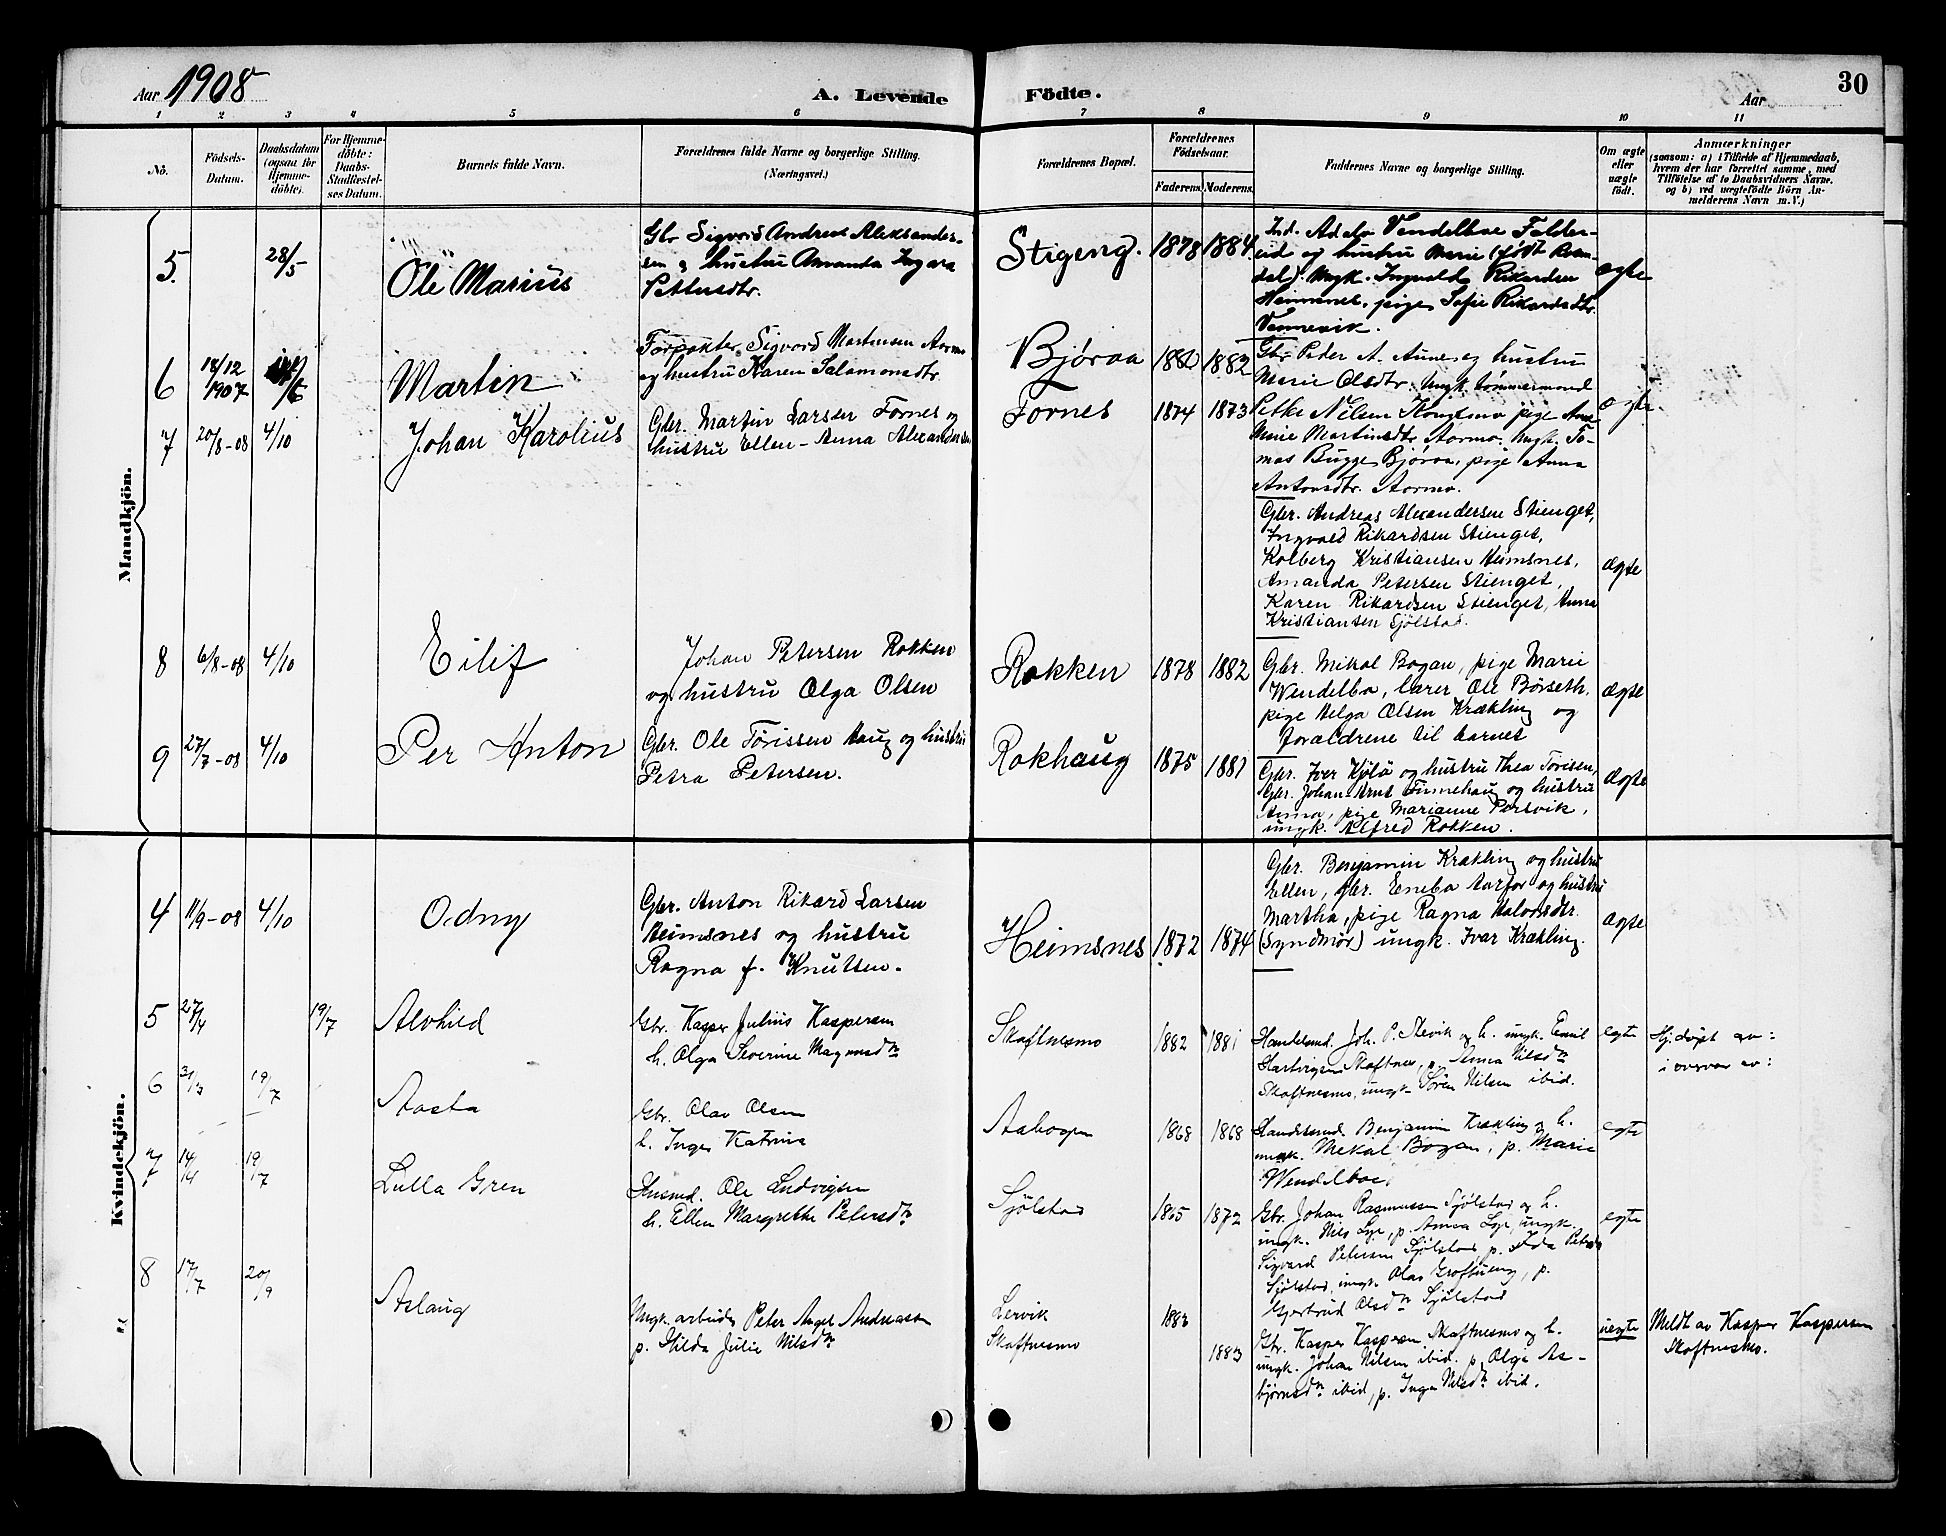 Aar 1908
A. Levende Födte.
Aar
30
1 2 3 4 5 6 7 8 9 10 11
No.
Födsels-Datum.
Daabsdatum (ogsaa for Hjemme-döbte).
For Hjemme-döbte: Daabs-Stadfæstel-ses Datum.
Barnets fulde Navn.
Forældrenes fulde Navne og borgerlige Stilling.
(Næringsvei.)
Forældrenes Bopæl.
Forældrenes Födselsaar.
Faderens. Moderens.
Faddernes Navne og borgerlige Stilling.
Om ægte eller uægte födt.
Anmærkninger
(saasom: a) i Tilfælde af Hjemmedaab,
hvem der har forrettet samme, med
Tilföielse af to Daabsvidners Navne.
og b) ved uægtefödte Börn An-
melderens Navn m.V.)
Mandkjön.
5. 28/5 Ole Marius
Gbr Sigvord Andreas Aleksander-
sen og hustru Amanda Ingara
Pettersdtr.
Stigeng. 1878 1884
Ind. Adolv Vendelboe Folder-
eid og hustru Marie (født Roen-
dal). Ungk. Ingvald Rikardsen
Heimsnes, pige Sofie Rikardsdtr.
Vennevik.
ægte
6 14/12 1907 Martin
Forpakter Sigvord Martinsen Aormo
og hustru Karen Salamonsdtr.
Bjøraa 1882
Gbr Peder A. Aune og hustru
Marie Olsdtr. Ungk. tømmermand
Petter Nilsen Kongsmo pige Ane
Marie Martinsdtr Aormo. Ungk. To-
mas Bugge Bjøraa, pige Anna
Antonsdtr. Aormo.
ægte
7 20/8-08 4/10 Johan Karolius
Gbr. Martin Larsen Fornes og
hustru Ellen-Anna Alexandersen
Fornes 1874 1873
Gbr. Andreas Alexandersen Stienget,
Ingvald Rikardsen Stienget,
Kolberg Kristiansen Heimsnes,
Amanda Petersen Stienget,
Karen Rikardsen Stienget, Anna
Kristiansen Sjölstad.
ægte
8 6/8-08 4/10 Eilif
Johan Petersen Rokken
og hustru Olga Olsen
Rokken 1878 1882
Gbr. Mikal Bogan, pige Marie
Wendelbo, lærer Ole Börseth,
pige Helga Olsen Krækling og
forældrene til barnet
ægte
9 27/7-08 4/10 Per Anton
Gbr. Ole Törissen Haug og hustru
Petra Petersen.
Rokhaug 1875 1881
Gbr. Iver Kjölö og hustru Thea Torisen,
Gbr. Johan-Arnt Finnehaug og hustru
Anna, pige Marianne Persvik,
ungk. Alfred Rokken.
ægte
Kvindekjön.
4 11/9-08 4/10 Odny
Gbr. Anton Rikard Larsen
Heimsnes og hustru
Ragna f. Knutsen.
Heimsnes 1872 1874
Gbr. Benjamin Krækling og hustru
Ellen, gbr. Eneba Aarfor og hustru
Martha, pige Ragna Halvordsdtr.
(Syndmör) ungk. Ivar Krækling.
ægte
5 27/4 19/7 Alvhild
Gbr. Kasper Julius Kaspersen
h. Olga Severine Magnusdtr
Skaftnesmo 1882 1881
Handelsmd. Joh. P. Revik og h. ungk. Emil
Hartvigsen Skaftnes, p. Anna Nilsdtr
Skaftnesmo, ungk. Sören Nilsen ibid.
egte
Hj.döpt av:
i overvær av:
6 31/3 19/7 Aasta
Gbr. Olav Olsen
h. Inger Katrine
Aabogen 1868 1868
Handelsmd. Benjamin Krækling og h.
ungk. Mekal Bogan, p. Marie
Wendelboe.
egte
7 14/4 19/7 Lulla Gren
Husmd. Ole Ludvigsen
h. Ellen Margrethe Petersdtr
Sjölstad 1865 1872
Gbr. Johan Rasmussen Sjölstad og h.
ungk. Nils Lye, p. Anna Lye, ungk.
Sigvard Petersen Sjölstad, p. Ida Peters
Sjölstad, ungk. Olav Groftueng, p.
Gjertrud Olsdtr Sjölstad
egte
8 17/7 20/9 Aslaug
Ungk. arbeider Peter Angel Andreassen
p. Hilda Julie Nilsdtr
Lervik
Skaftnesmo
1883
1883
Gbr. Kasper Kaspersen Skaftnesmo og h.
ungk. Johan Nilsen ibid. p. Olga As-
björnsdtr ibid, p. Inga Nilsdtr ibid.
uegte
Meldt av Kasper Kaspersen
Skaftnesmo.